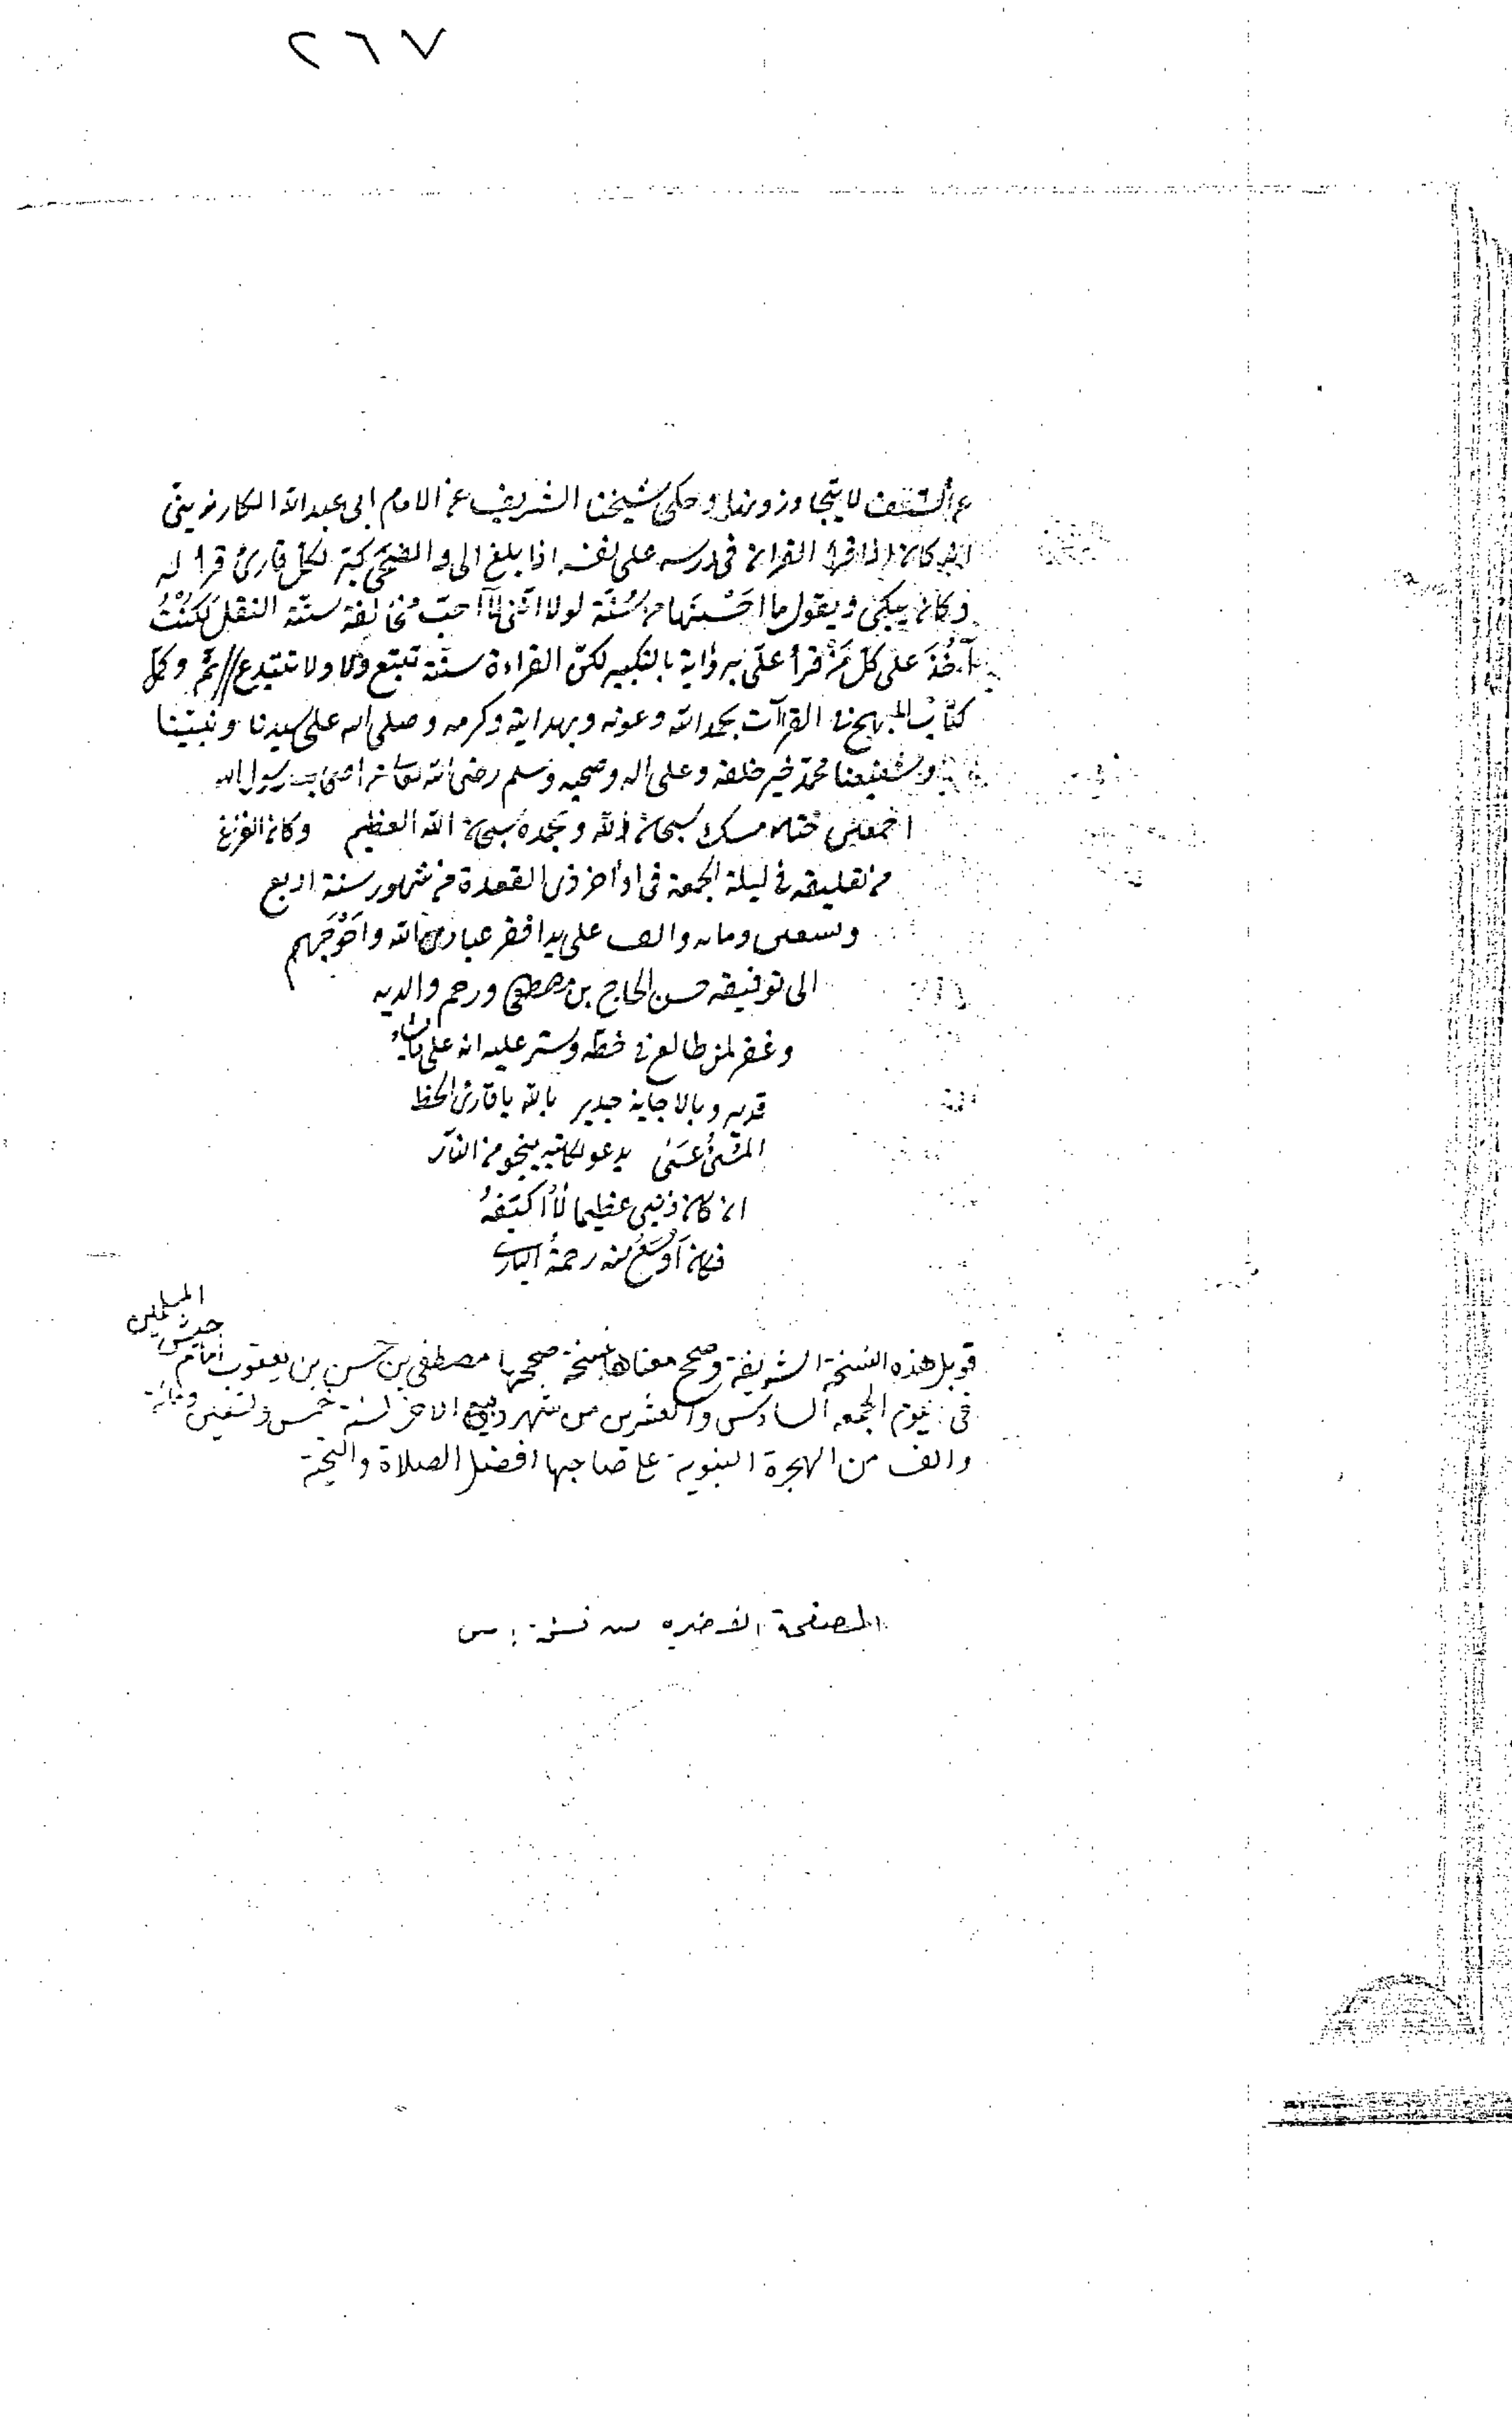 ٢٦٧
عن السلف لا يتجاوزونها وحكى شيخنا الشريف عن الامام ابى عبدالله الكارزينى
انه كان اذا قرأ القران فى درسه على نفسه اذا بلغ الى والضحى كبّر لكل قارئ قرا له
فكان يبكى ويقول ما احسنها من سُنّة لولا انّنى لا احبّ مخالفة سنّة النقل لكنتُ
آخُذَ على كلّ مَنْ قرأ علىّ برواية بالتكبير لكنّ القراءة سنّة تتبّع ولا تبتدع // تمّ وكمل
كتاب المبهج فى القرآت بحمدالله وعونه وبهدايته وكرمه وصلى الله على سيدنا ونبيّنا
وشفيعنا محمّد خير خلقه وعلى اله وصحبه وسلم رضى الله تعالى عن اصحاب رسول الله
اجمعين ختامه مسك سبحان الله وبحمده سبحان الله العظيم وكان الفراغ
من تعليقه فى ليلة الجمعة فى اواخر ذى القعدة من شهور سنة اربع
وتسعين ومائه والف على يد افقر عباد الله واحوجهم
الى توفيقه حسن الحاج بن مصطفى ورحم والديه
وغفر لمن طالع فى خطّه وستر عليه انه على ما يشاء
قدير وبالاجابة جدير بالله يا قارئ الخط
عسَى يدعو لكاتبه ينجو من النار
ان كان ذنبى عظيما
فكان اوسَعُ منه رحمةُ البارى
قوبل هذه النسخة الشريفة وصح معناها نسخة صححها مصطفى بن حسن بن يعقوب امام
المسلمين
فى يوم الجمعه السادس والعشرين من شهر ربيع الاخر لسنة خمس وتسعين ومائة
والف من الهجرة النبوية على صاحبها افضل الصلاة والتحية
الصفحة الاخيره من نسخة : س